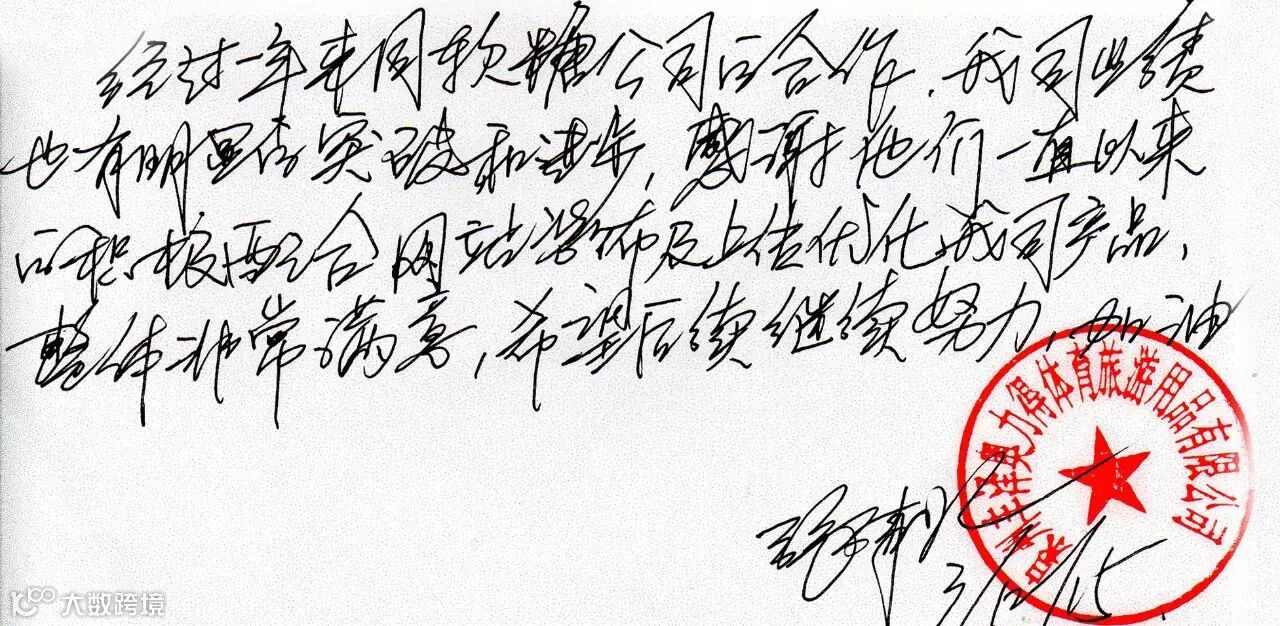 经过一年来同软糖公司的合作,我司业绩
也有明显的突破和进步,感谢他们一直以来
的积极配合网站发布及上传优化我司产品,
整体非常满意,希望后续继续努力,加油
奥力得体育旅游用品有限公司
3/12/15
大数跨境